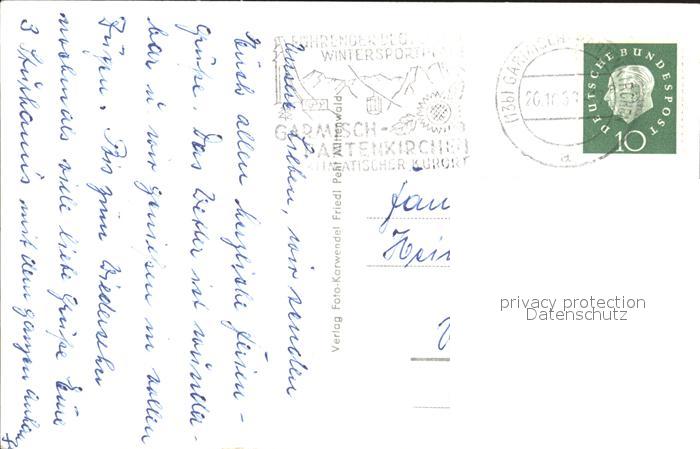 Unsere Lieben, wir senden
Euch allen herzliche Ferien-
grüße. Das Wetter ist wunder-
bar u. wir genießen in vollen
Zügen. Bis zum Wiedersehen
nochmals viele liebe Grüße Eure
3 mit dem ganzen
FÜHRENDER
WINTERSPORTPLATZ
GARMISCH-
PARTENKIRCHEN
KLIMATISCHER KURORT
(13b) GARMISCH-PARTENKIRCHEN
26.10.59
a
DEUTSCHE BUNDESPOST
10
Verlag Foto-Karwendel Friedl Peter Mittenwald
Fam
Hein
privacy protection
Datenschutz